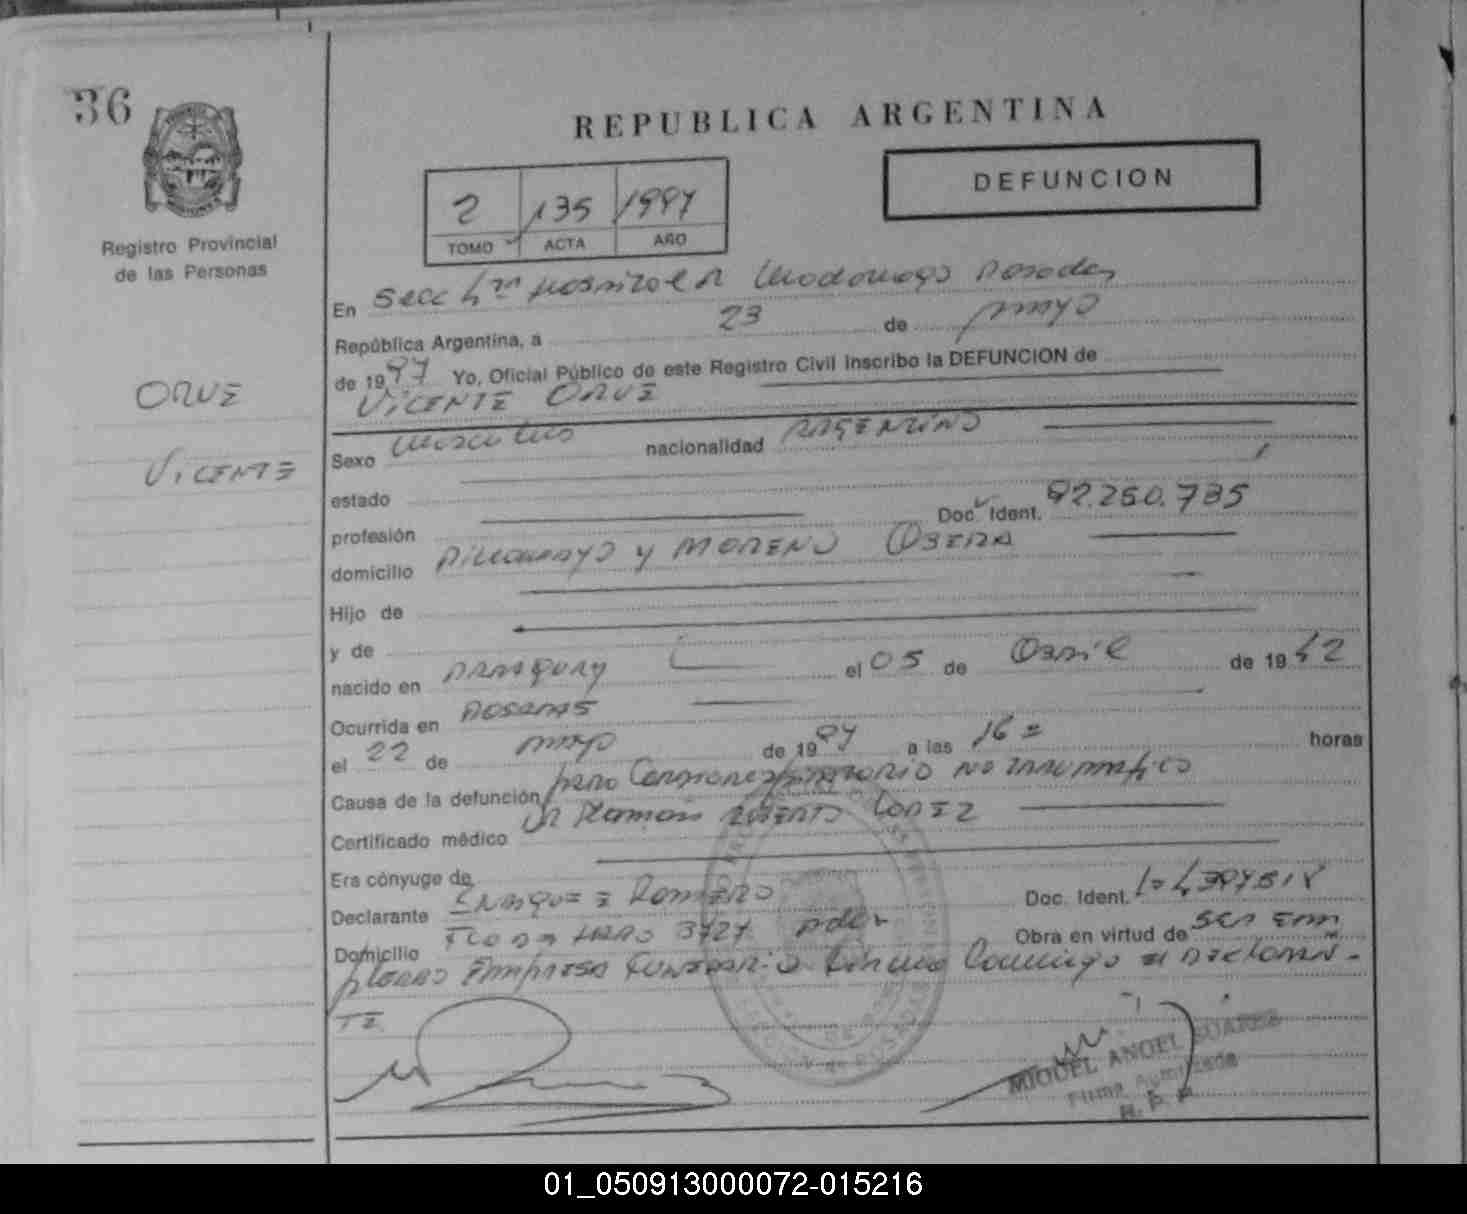 36
REPUBLICA ARGENTINA
DEFUNCION
2 135 1997
TOMO ACTA AÑO
Registro Provincial
de las Personas
En Secc 4ta Hospital R Madariaga Posadas
República Argentina, a 23 de mayo
de 1997 Yo, Oficial Público de este Registro Civil inscribo la DEFUNCION de
VICENTE ORUE
ORUE
VICENTE
Sexo Masculino nacionalidad ARGENTINO
estado
profesión Doc. Ident. 92.250.735
domicilio PILCOMAYO Y MORENO OBERA
Hijo de
y de
nacido en PARAGUAY el 05 de Abril de 1942
Ocurrida en POSADAS
el 22 de mayo de 1997 a las 16 horas
Causa de la defunción paro Cardiorespiratorio NO TRAUMATICO
Certificado médico Dr Ramon ALBERTO LOPEZ
Era cónyuge de
Declarante ENRIQUE ROMERO Doc. Ident.
Domicilio FCO DE HARO 3727 Pdas Obra en virtud de SER EM
PLEADO EMPRESA FUNERARIA el DECLARAN-
TE
MIGUEL ANGEL SUAREZ
Firma Autorizada
R. P. P.
01_050913000072-015216